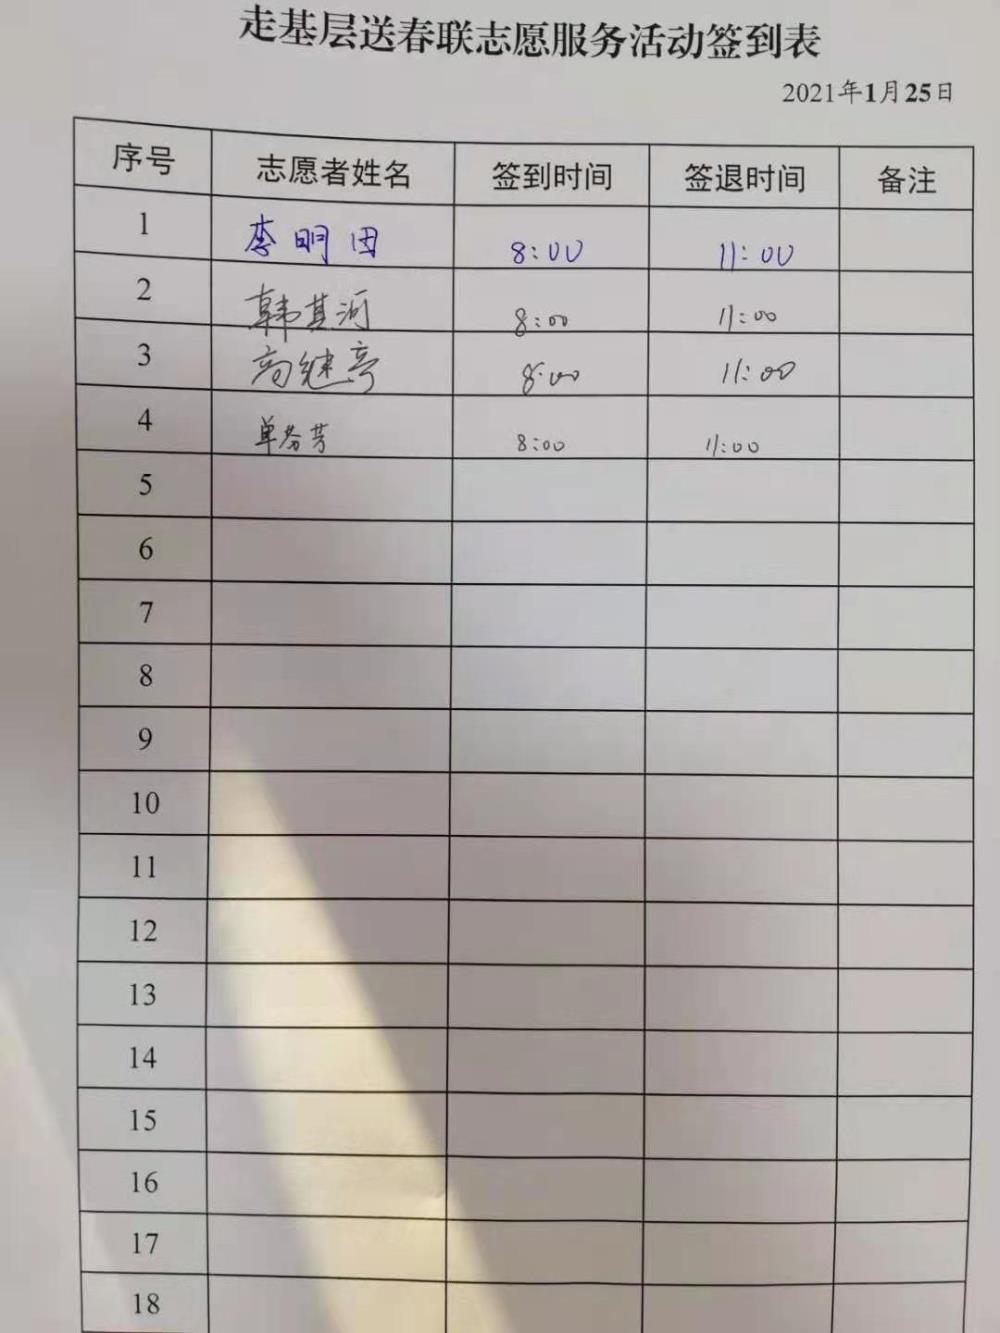 走基层送春联志愿服务活动签到表
2021年1月25日
序号 志愿者姓名 签到时间 签退时间 备注
1 李明田 8:00 11:00
2 韩其河 8:00 11:00
3 高继亭 8:00 11:00
4 单芳 8:00 11:00
5
6
7
8
9
10
11
12
13
14
15
16
17
18